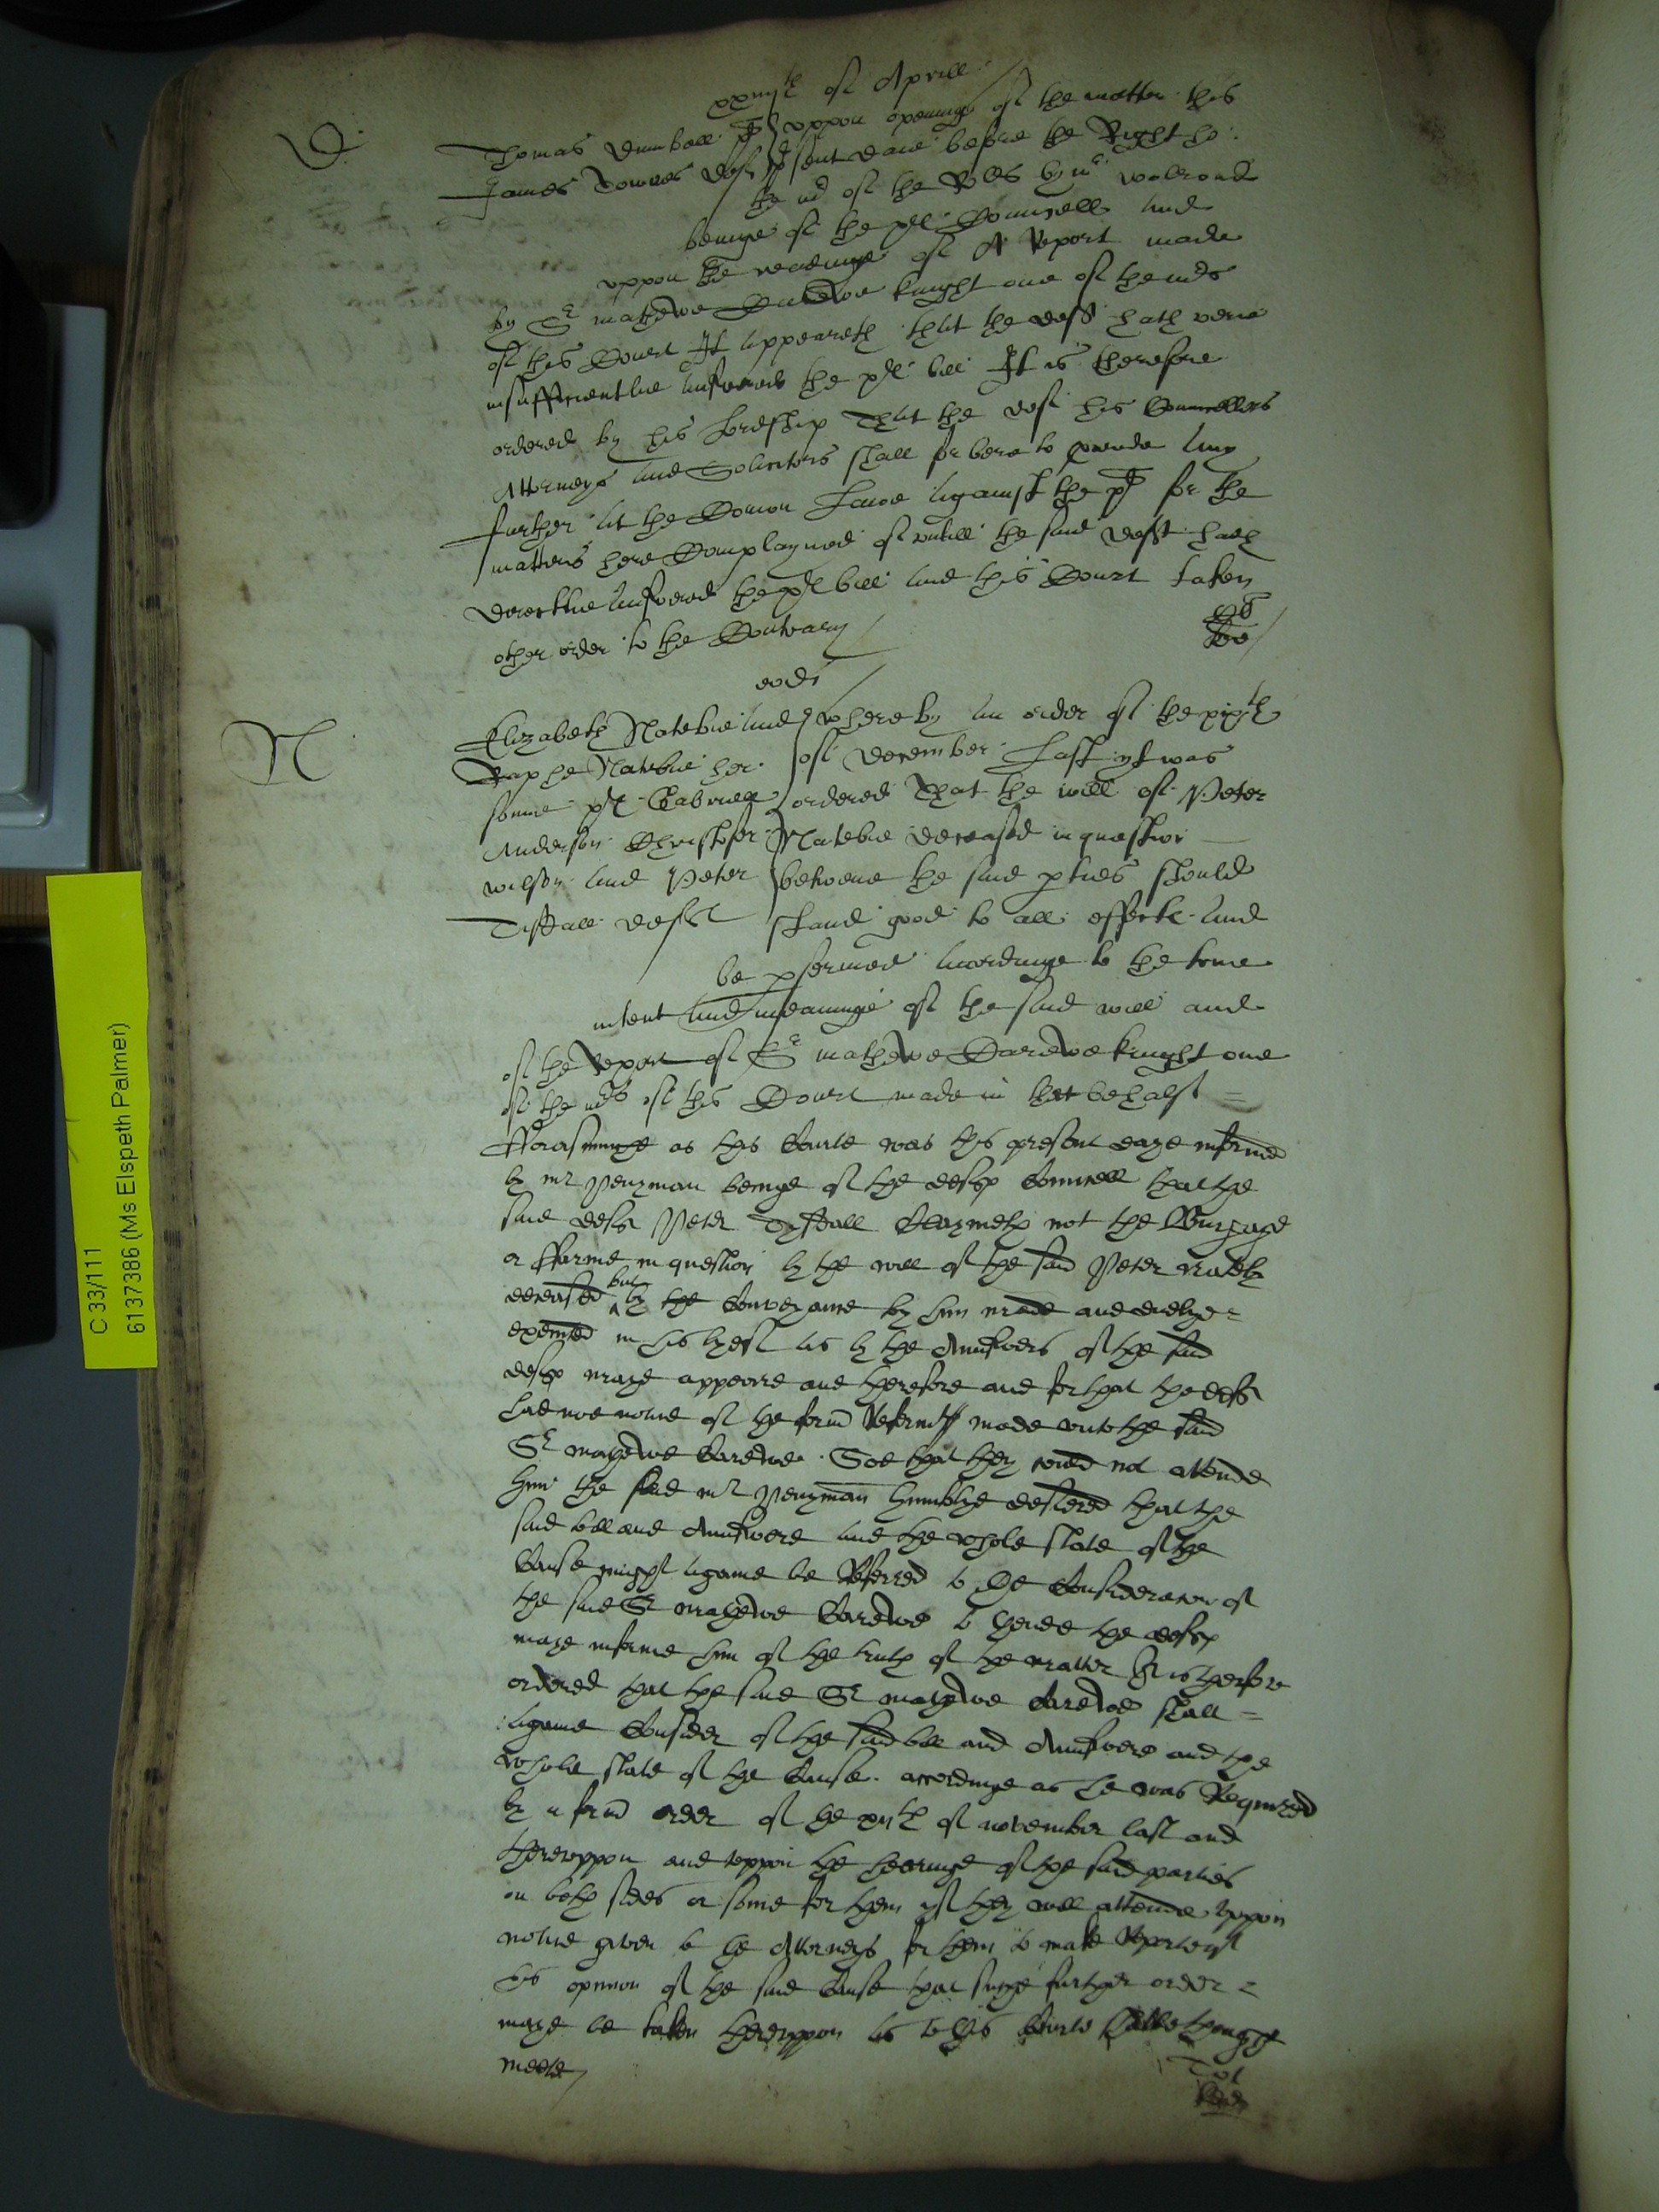 xxiiijth of Aprill
D.
Thomas Dumbell pl uppon openinge of the matter this
James Downes deft present daie before the Right ho:
the mr of the Rolles by mr walrond
beinge of the pls Councell and
uppon the readinge of A Report made
by Sr mathewe Carewe knight one of the mrs
of this Court It appeareth that the deft hath verie
insufficientlie answered the pls bill It is therefore
ordered by his Lordship That the deft his Councellors
Attorneys and Solicitors shall forbere to procede any
further at the Comon Lawe against the pl for the
matters here Complayned of untill the said deft hath
directlie answered the pls bill and this Court taken
other order to the Contrary
eod
N
Elizabeth Natebie and whereby an order of the xixth
Raphe Natebie her of December Last yt was
sonne pls Gabriell ordered That the will of Peter
Anderson Christofer Natebie deceased in question
wilson and Peter betwene the said pties should
Tistall defts stand good to all effecte and
be pformed accordinge to the trewe
intent and meaninge of the said will and
of the Report of Sr mathewe Carewe knight one
of the mrs of this Court made in that behalf =
fforasmuche as this Courte was this present daye informed
by mr Penyman beinge of the defts Councell that the
said deft Peter Tystall Claymeth not the Burgage
or fferme in question by the will of the said Peter Nateby
deceased but by the Conveyance by him made and dulye =
executed in his lyef as by the Aunswers of the said
defts maye appeare and therefore and for that the defts
had noe notice of the form Referment made unto the said
Sr mathewe Carewe. Soe that they could not attende
him the said mr Penyman humblye desiered that the
said bill and Aunswere and the whole state of the
Cause might againe be Referred to the Consideracon of
the said Sr mathewe Carewe to thende the defts
maye informe him of the truth of the matter It is therfore
ordered that the said Sr mathewe Carewe shall =
againe Consider of the said bill and Aunswere and the
whole state of the Cause. accordinge as he was Required
by a form order of the xvith of november last and
thereuppon and uppon the hearinge of the said parties
on both sides or some for them yf they will attende uppon
notice given to the Attorneys for them to make Reporte of
his opinion of the said Cause that suche further order =
maye be taken thereuppon as to this Courte shalbe thought
meete
C 33/111
6137386 (Ms Elspeth Palmer)